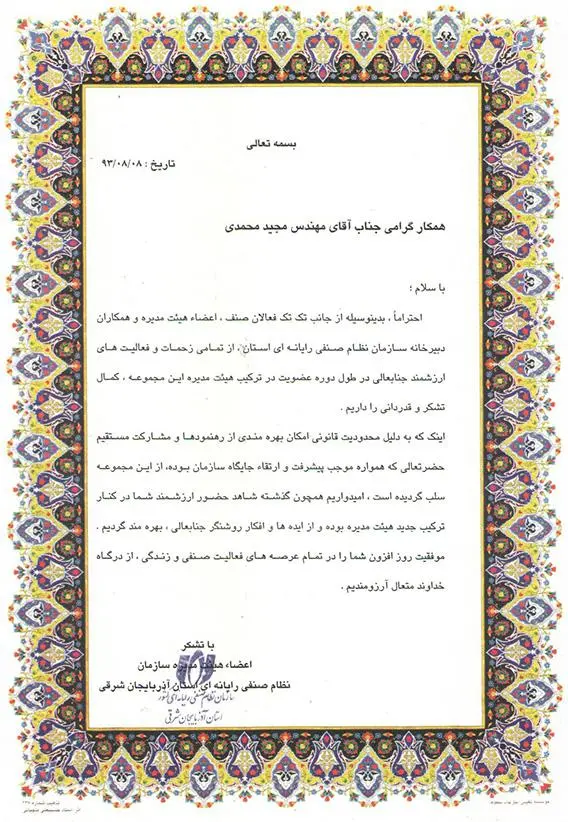 بسمه تعالی
تاریخ : ۹۳/۰۸/۰۸
همکار گرامی جناب آقای مهندس مجید محمدی
با سلام ؛
احتراماً ، بدینوسیله از جانب تک تک فعالان صنف ، اعضاء هیئت مدیره و همکاران
دبیرخانه سازمان نظام صنفی رایانه ای استان ، از تمامی زحمات و فعالیت های
ارزشمند جنابعالی در طول دوره عضویت در ترکیب هیئت مدیره این مجموعه ، کمال
تشکر و قدردانی را داریم .
اینک که به دلیل محدودیت قانونی امکان بهره مندی از رهنمودها و مشارکت مستقیم
حضرتعالی که همواره موجب پیشرفت و ارتقاء جایگاه سازمان بوده، از این مجموعه
سلب گردیده است ، امیدواریم همچون گذشته شاهد حضور ارزشمند شما در کنار
ترکیب جدید هیئت مدیره بوده و از ایده ها و افکار روشنگر جنابعالی ، بهره مند گردیم .
موفقیت روز افزون شما را در تمام عرصه های فعالیت صنفی و زندگی ، از درگاه
خداوند متعال آرزومندیم .
با تشکر
اعضاء هیئت مدیره سازمان
نظام صنفی رایانه ای استان آذربایجان شرقی
سازمان نظام صنفی رایانه ای کشور
استان آذربایجان شرقی